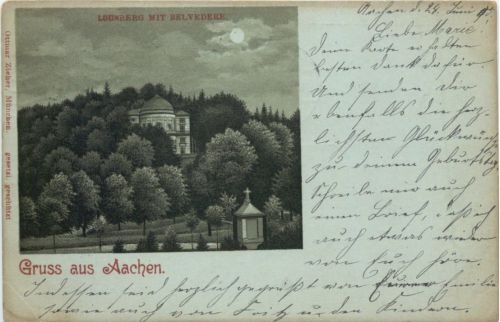 LOUSBERG MIT BELVEDERE.
Ottmar Zieher, München. gesetzl. geschützt
Gruss aus Aachen.
Aachen d. 24. Juni
Liebe Marie
Deine Karte erhalten
besten Dank dafür
Und senden dir
ebenfalls die herz-
lichsten Glückwünsche
zu deinem Geburtstag
Schreibe mir auch
einen Brief, daß ich
auch etwas wieder
von Euch höre.
Indessen seid herzlich gegrüßt von Emilie
sowie auch von Fritz u. den Kindern.